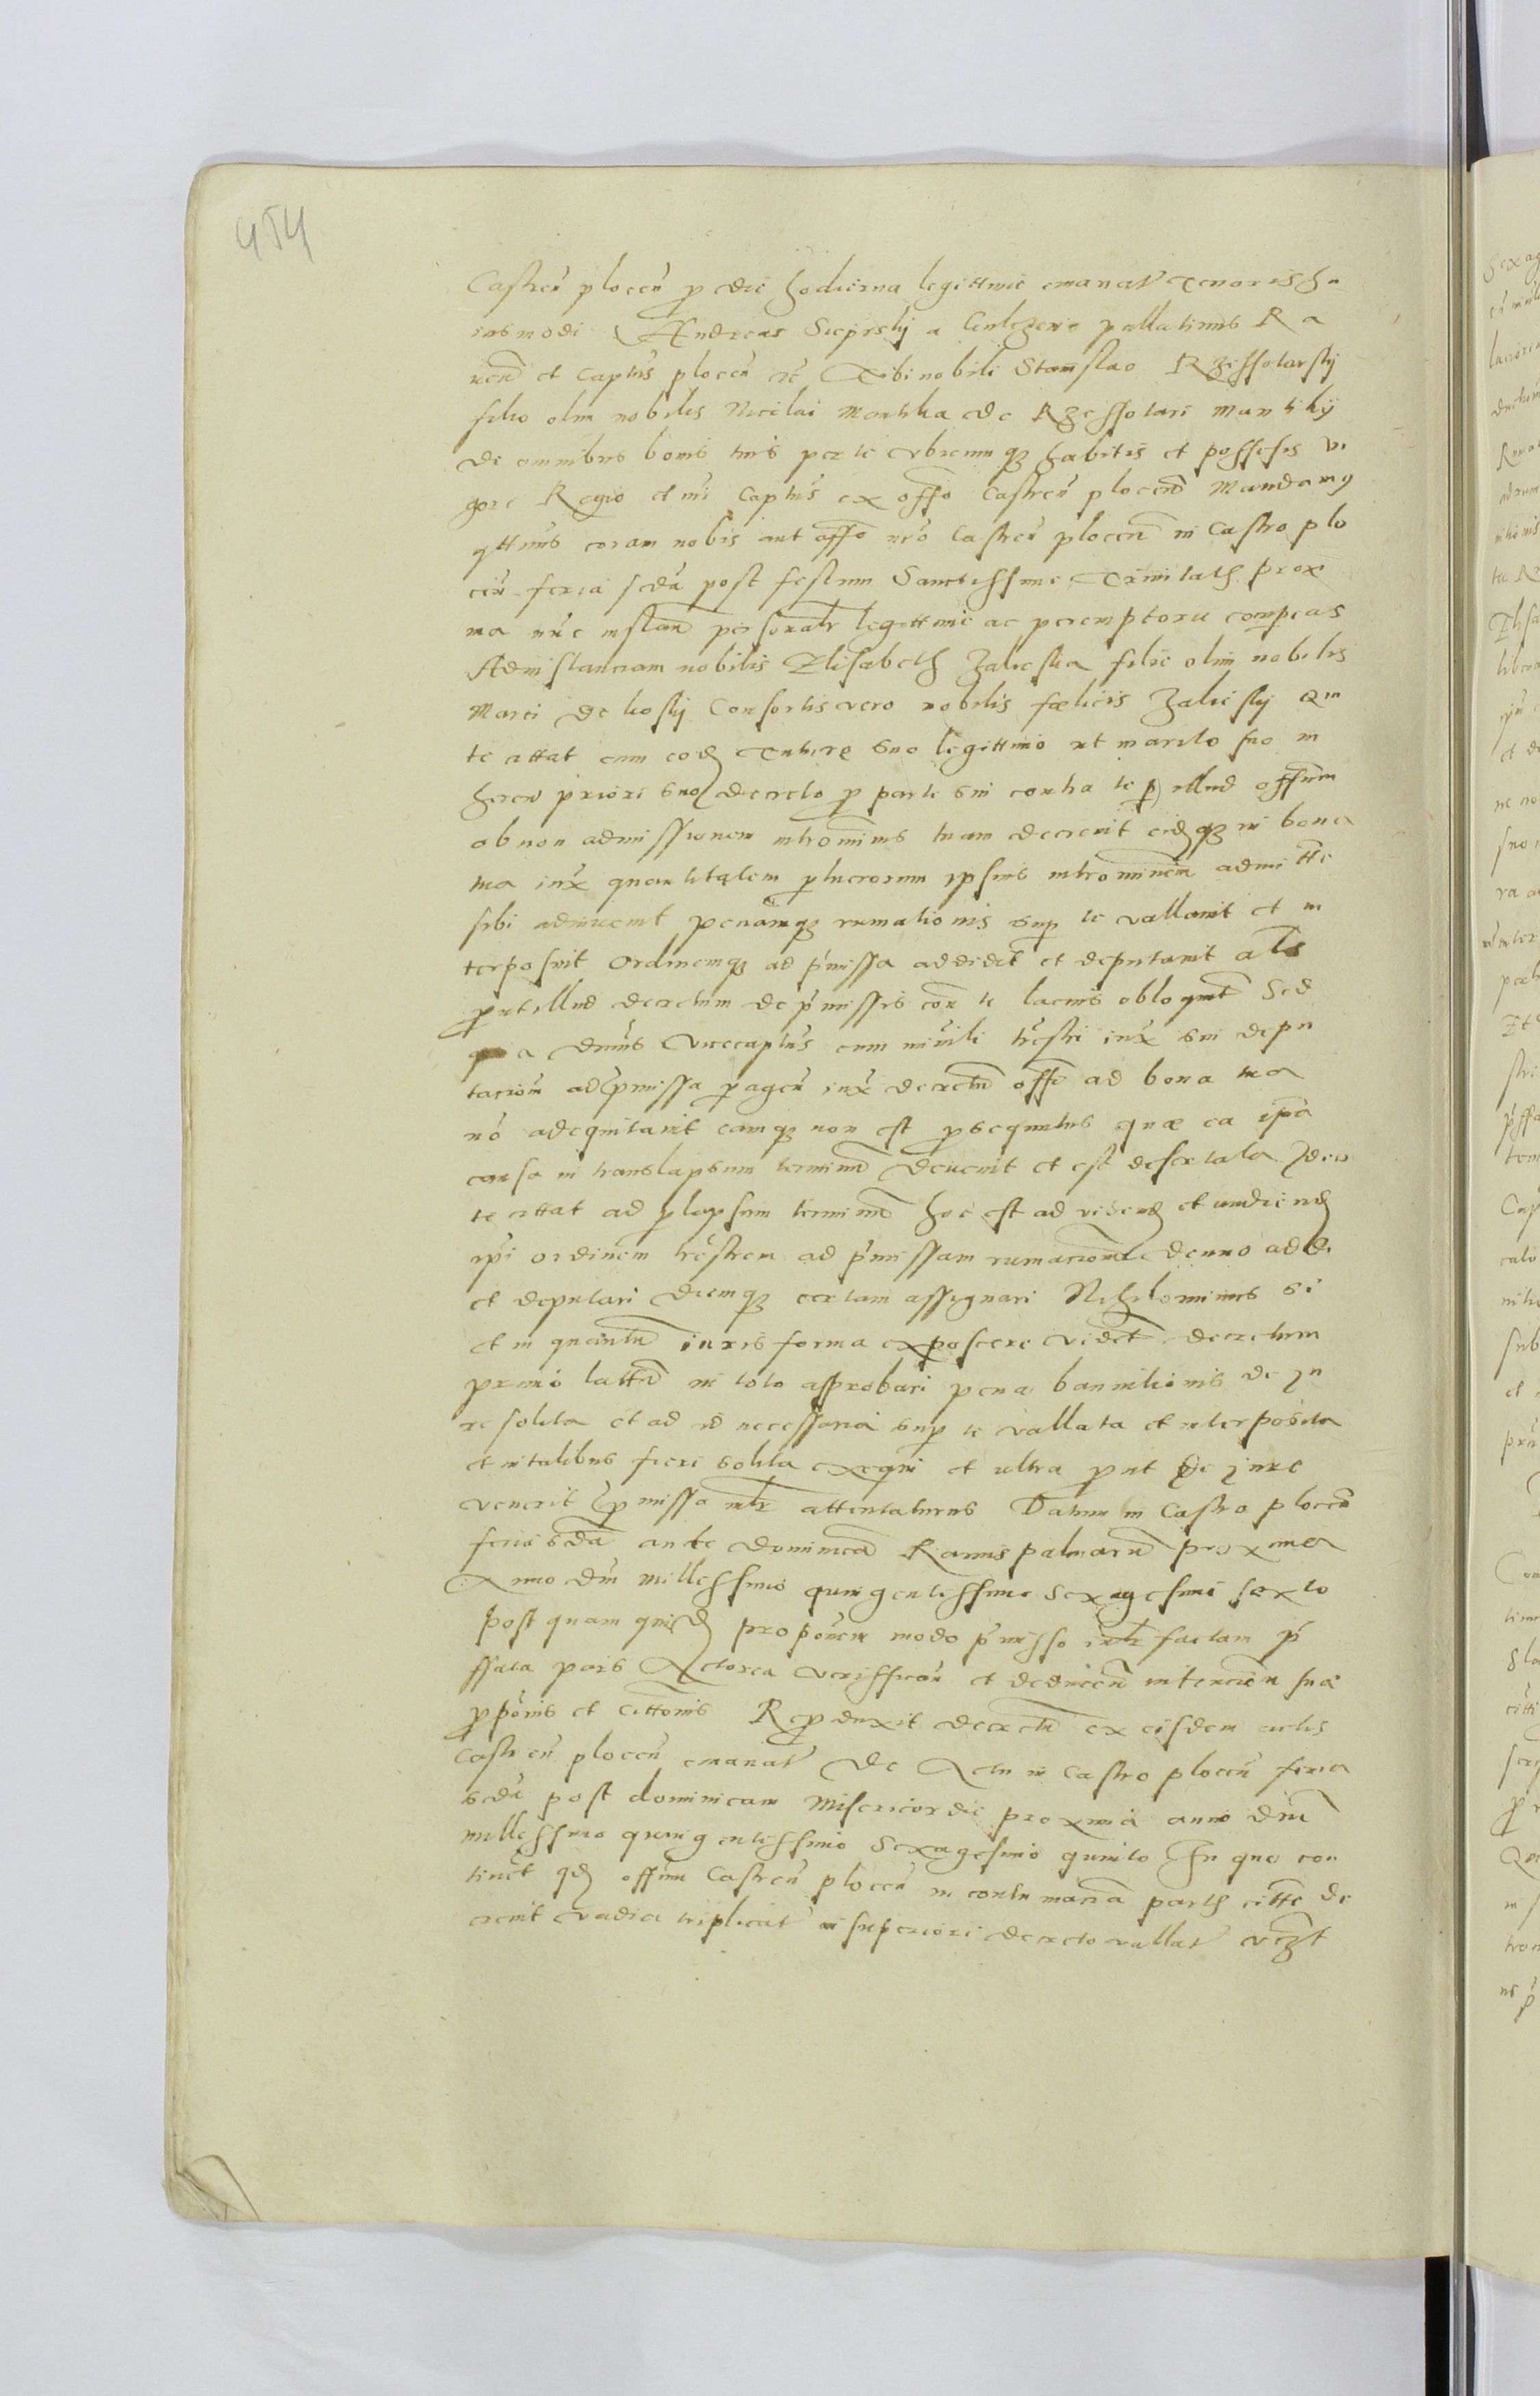 454
Castren̄ plocen̄ p die hodierna legittime emanat tenoris hu
iusmodi Andreas Sieprsky a pallatinus Ra
uen̄ et Captūs plocen̄ etc Tibi nobili Stanislao Rzessotarsky
filio olim nobilis Nicolai Mantika de Rzessotari Mantiky
de omnibus bonis tuis per te vbicumqȝ habitis et possessis vi
gore Regio et nr̄i Captūs ex offo Castren̄ plocen̄ Mandamus
qttnus coram nobis aut offo nr̄o Castren̄ plocen̄ in Castro plo
cen̄ feria scda post festum Sanctissime Trinitatis prox
ma nūc instan̄ personalr legittime ac peremptorie compeas
Ad instanciam nobilis Elisabeth Zalieska filie olim nobilis
Marci de Consortis vero nobilis fœlicis Zaliesky Qu
te cittat cum eod tutore suo legittimo ut marito suo in
heren̄ priori suo decreto p parte sui contra te p illud offium
ob non admissionem intromīnis tuam decreuit eidqȝ in bona
tua iux̄ quantitatem plucrorum ipsius intromīnem admitte
sibi adinuenit penamqȝ rumationis sup te vallauit et in
terposuit Ordinemqȝ ad pmissa addidit et deputauit als
put illud decretum de pmissis con te lacius obloquit Sed
qa dnus vicecaptūs cum nr̄i iux sui depu
tacion̄ ad pmissa pagen̄ iux̄ decretū offi ad bona tua
nō adequitauit eamqȝ non est psequutus quæ ea ipa
causa in translapsum terminū deuenit et est desertata Ideo
te cittat ad plapsum terminū hoc est ad vidend et audiend
ipi ordinem trestren ad pmissam rumacionē denuo addi
et deputari diemqȝ certam assignari Nihilominus si
et in quantū iuris forma exposcere videt decretum
primo lattū in toto approbari pena bannitionis de Ju
re solita et ad id necessaria sup te vallata et interposita
et in talibus fieri solita exequi et ultra put de Jure
venerit pmissa intr attentaturus Datum in Castro plocen̄
feria scda ante dominicā Ramispalmarū proxima
Anno dni Millessimo quingentessimo Sexagesimo sexto
post quam quid proponem modo pmisso intr factam p
ffata pars Actorea verifficān et deducen̄ intencion suæ
pponis et cittonis Reproduxit decretū ex eisdem actis
Castren̄ plocen̄ emanat De Actu in Castro plocen̄ feria
scda post dominicam Misericordie proxima anno dni
millessimo quingentessimo Sexagesimo quinto In quo con
tinet qd offium Castren̄ plocen̄ in contumacia partis citte de
creuit vadia triplicat in superiori decreto vallat vczt